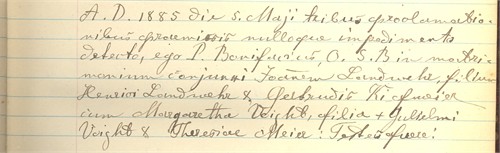 A. D. 1885 die 5. Maji tribus proclamatio-
nibus praemissis nulloque impedimento
detecto, ego P. Bonifacius, O. S. B in matri-
monium conjunxi Joanem Landwehr, filium
Henrici Landwehr & Gertrudis Kiefmeier
cum Margaretha Voight, filia & Gulielmi
Voight & Theresiae Meier: Testes fuere: